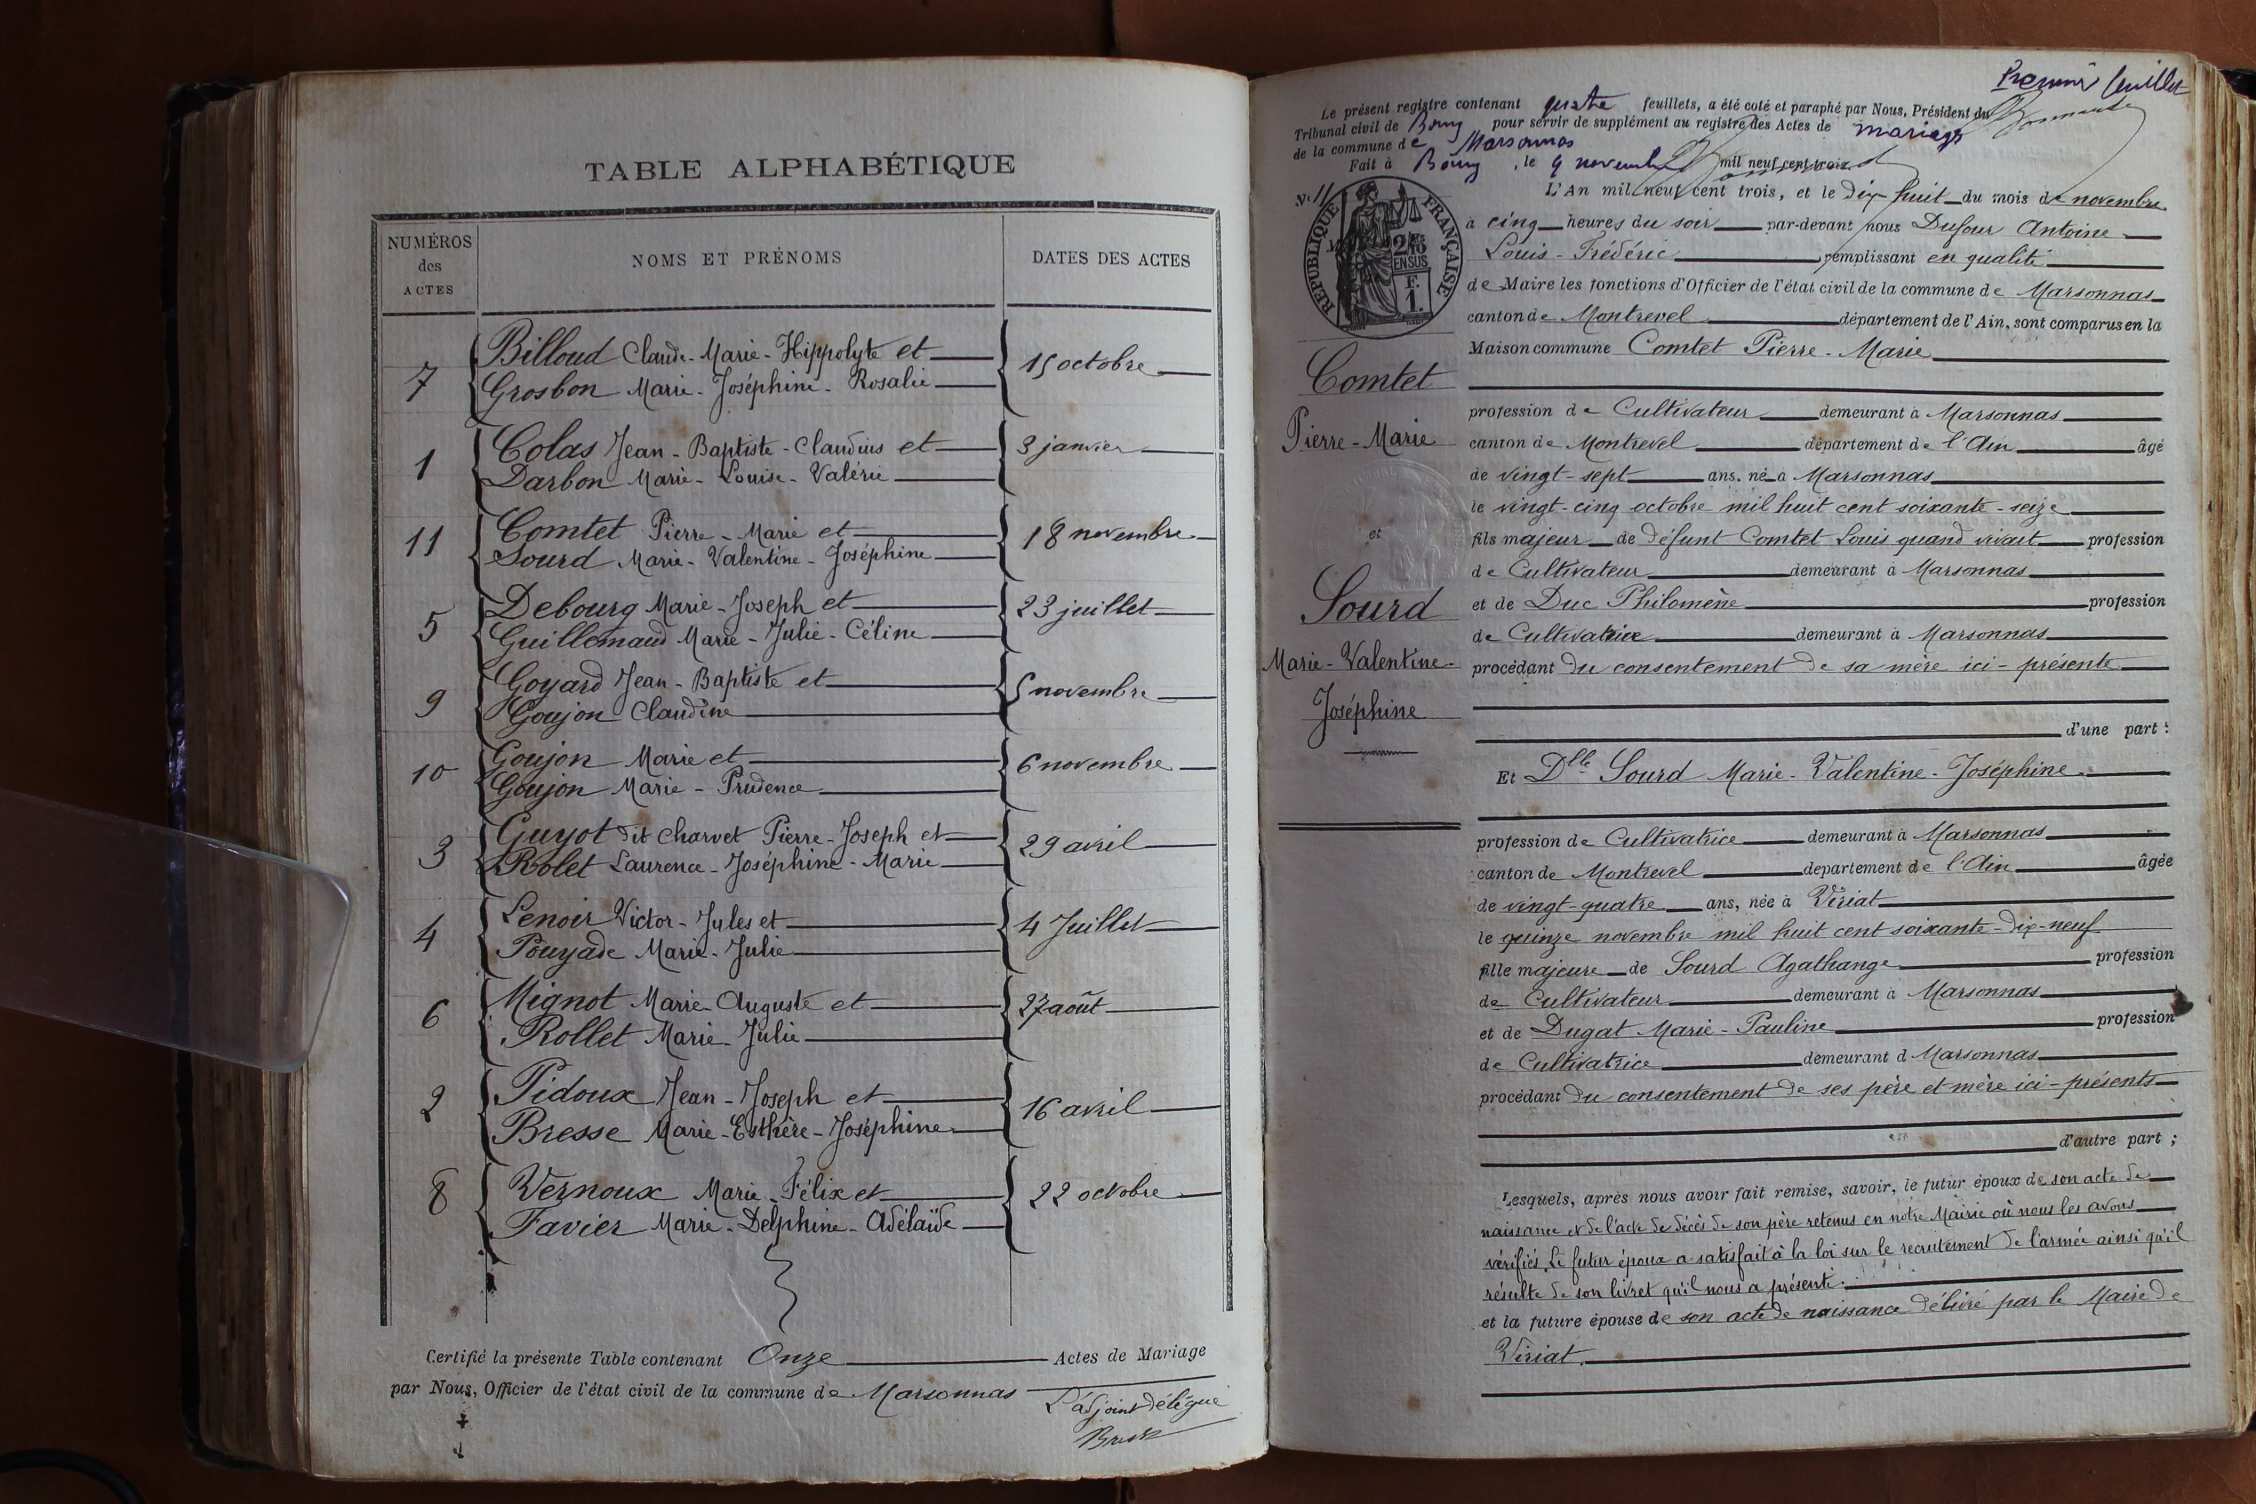 TABLE ALPHABÉTIQUE
NUMÉROS des ACTES
NOMS ET PRÉNOMS
DATES DES ACTES
7 Billoud Claude-Marie-Hippolyte et
Grosbon Marie-Joséphine-Rosalie
15 octobre
1 Colas Jean-Baptiste-Claudius et
Darbon Marie-Louise-Valérie
3 janvier
11 Comtet Pierre-Marie et
Sourd Marie-Valentine-Joséphine
18 novembre
5 Debourg Marie-Joseph et
Guillemaud Marie-Julie-Céline
23 juillet
9 Goyard Jean-Baptiste et
Goujon Claudine
5 novembre
10 Goujon Marie et
Goujon Marie-Prudence
6 novembre
3 Guyot dit Charvet Pierre-Joseph et
Rolet Laurence-Joséphine-Marie
29 avril
4 Lenoir Victor-Jules et
Pouyade Marie-Julie
4 Juillet
6 Mignot Marie-Auguste et
Rollet Marie-Julie
27 août
2 Pidoux Jean-Joseph et
Bresse Marie-Esthère-Joséphine
16 avril
8 Vernoux Marie-Félix et
Favier Marie-Delphine-Adélaïde
22 octobre
Certifié la présente Table contenant Onze Actes de Mariage
par Nous, Officier de l'état civil de la commune de Marsonnas
L'adjoint délégué
Premier feuillet
Le présent registre contenant quatre feuillets, a été coté et paraphé par Nous, Président du
Tribunal civil de Bourg pour servir de supplément au registre des Actes de mariage
de la commune de Marsonnas
Fait à Bourg, le 9 novembre mil neuf cent trois
N° 11
RÉPUBLIQUE FRANÇAISE
2/10 EN SUS
F. 1.
Comtet
Pierre-Marie
et
Sourd
Marie-Valentine-
Joséphine
L'An mil neuf cent trois, et le dix huit du mois de novembre
à cinq heures du soir par-devant nous Dufour Antoine
Louis-Frédéric remplissant en qualité
de Maire les fonctions d'Officier de l'état civil de la commune de Marsonnas
canton de Montrevel département de l'Ain, sont comparus en la
Maison commune Comtet Pierre-Marie
profession de Cultivateur demeurant à Marsonnas
canton de Montrevel département de l'Ain âgé
de vingt-sept ans, né à Marsonnas
le vingt-cinq octobre mil huit cent soixante-seize
fils majeur de défunt Comtet Louis quand vivait profession
de Cultivateur demeurant à Marsonnas
et de Duc Philomène profession
de Cultivatrice demeurant à Marsonnas
procédant du consentement de sa mère ici-présente
d'une part :
Et Dlle Sourd Marie-Valentine-Joséphine
profession de Cultivatrice demeurant à Marsonnas
canton de Montrevel département de l'Ain âgée
de vingt-quatre ans, née à Viriat
le quinze novembre mil huit cent soixante-dix-neuf
fille majeure de Sourd Agathange profession
de Cultivateur demeurant à Marsonnas
et de Dugat Marie-Pauline profession
de Cultivatrice demeurant à Marsonnas
procédant du consentement de ses père et mère ici-présents
d'autre part ;
Lesquels, après nous avoir fait remise, savoir, le futur époux de son acte de
naissance et de l'acte de décès de son père retenus en notre Mairie où nous les avons
vérifiés. Le futur époux a satisfait à la loi sur le recrutement de l'armée ainsi qu'il
résulte de son livret qu'il nous a présenté.
et la future épouse de son acte de naissance délivré par le Maire de
Viriat.